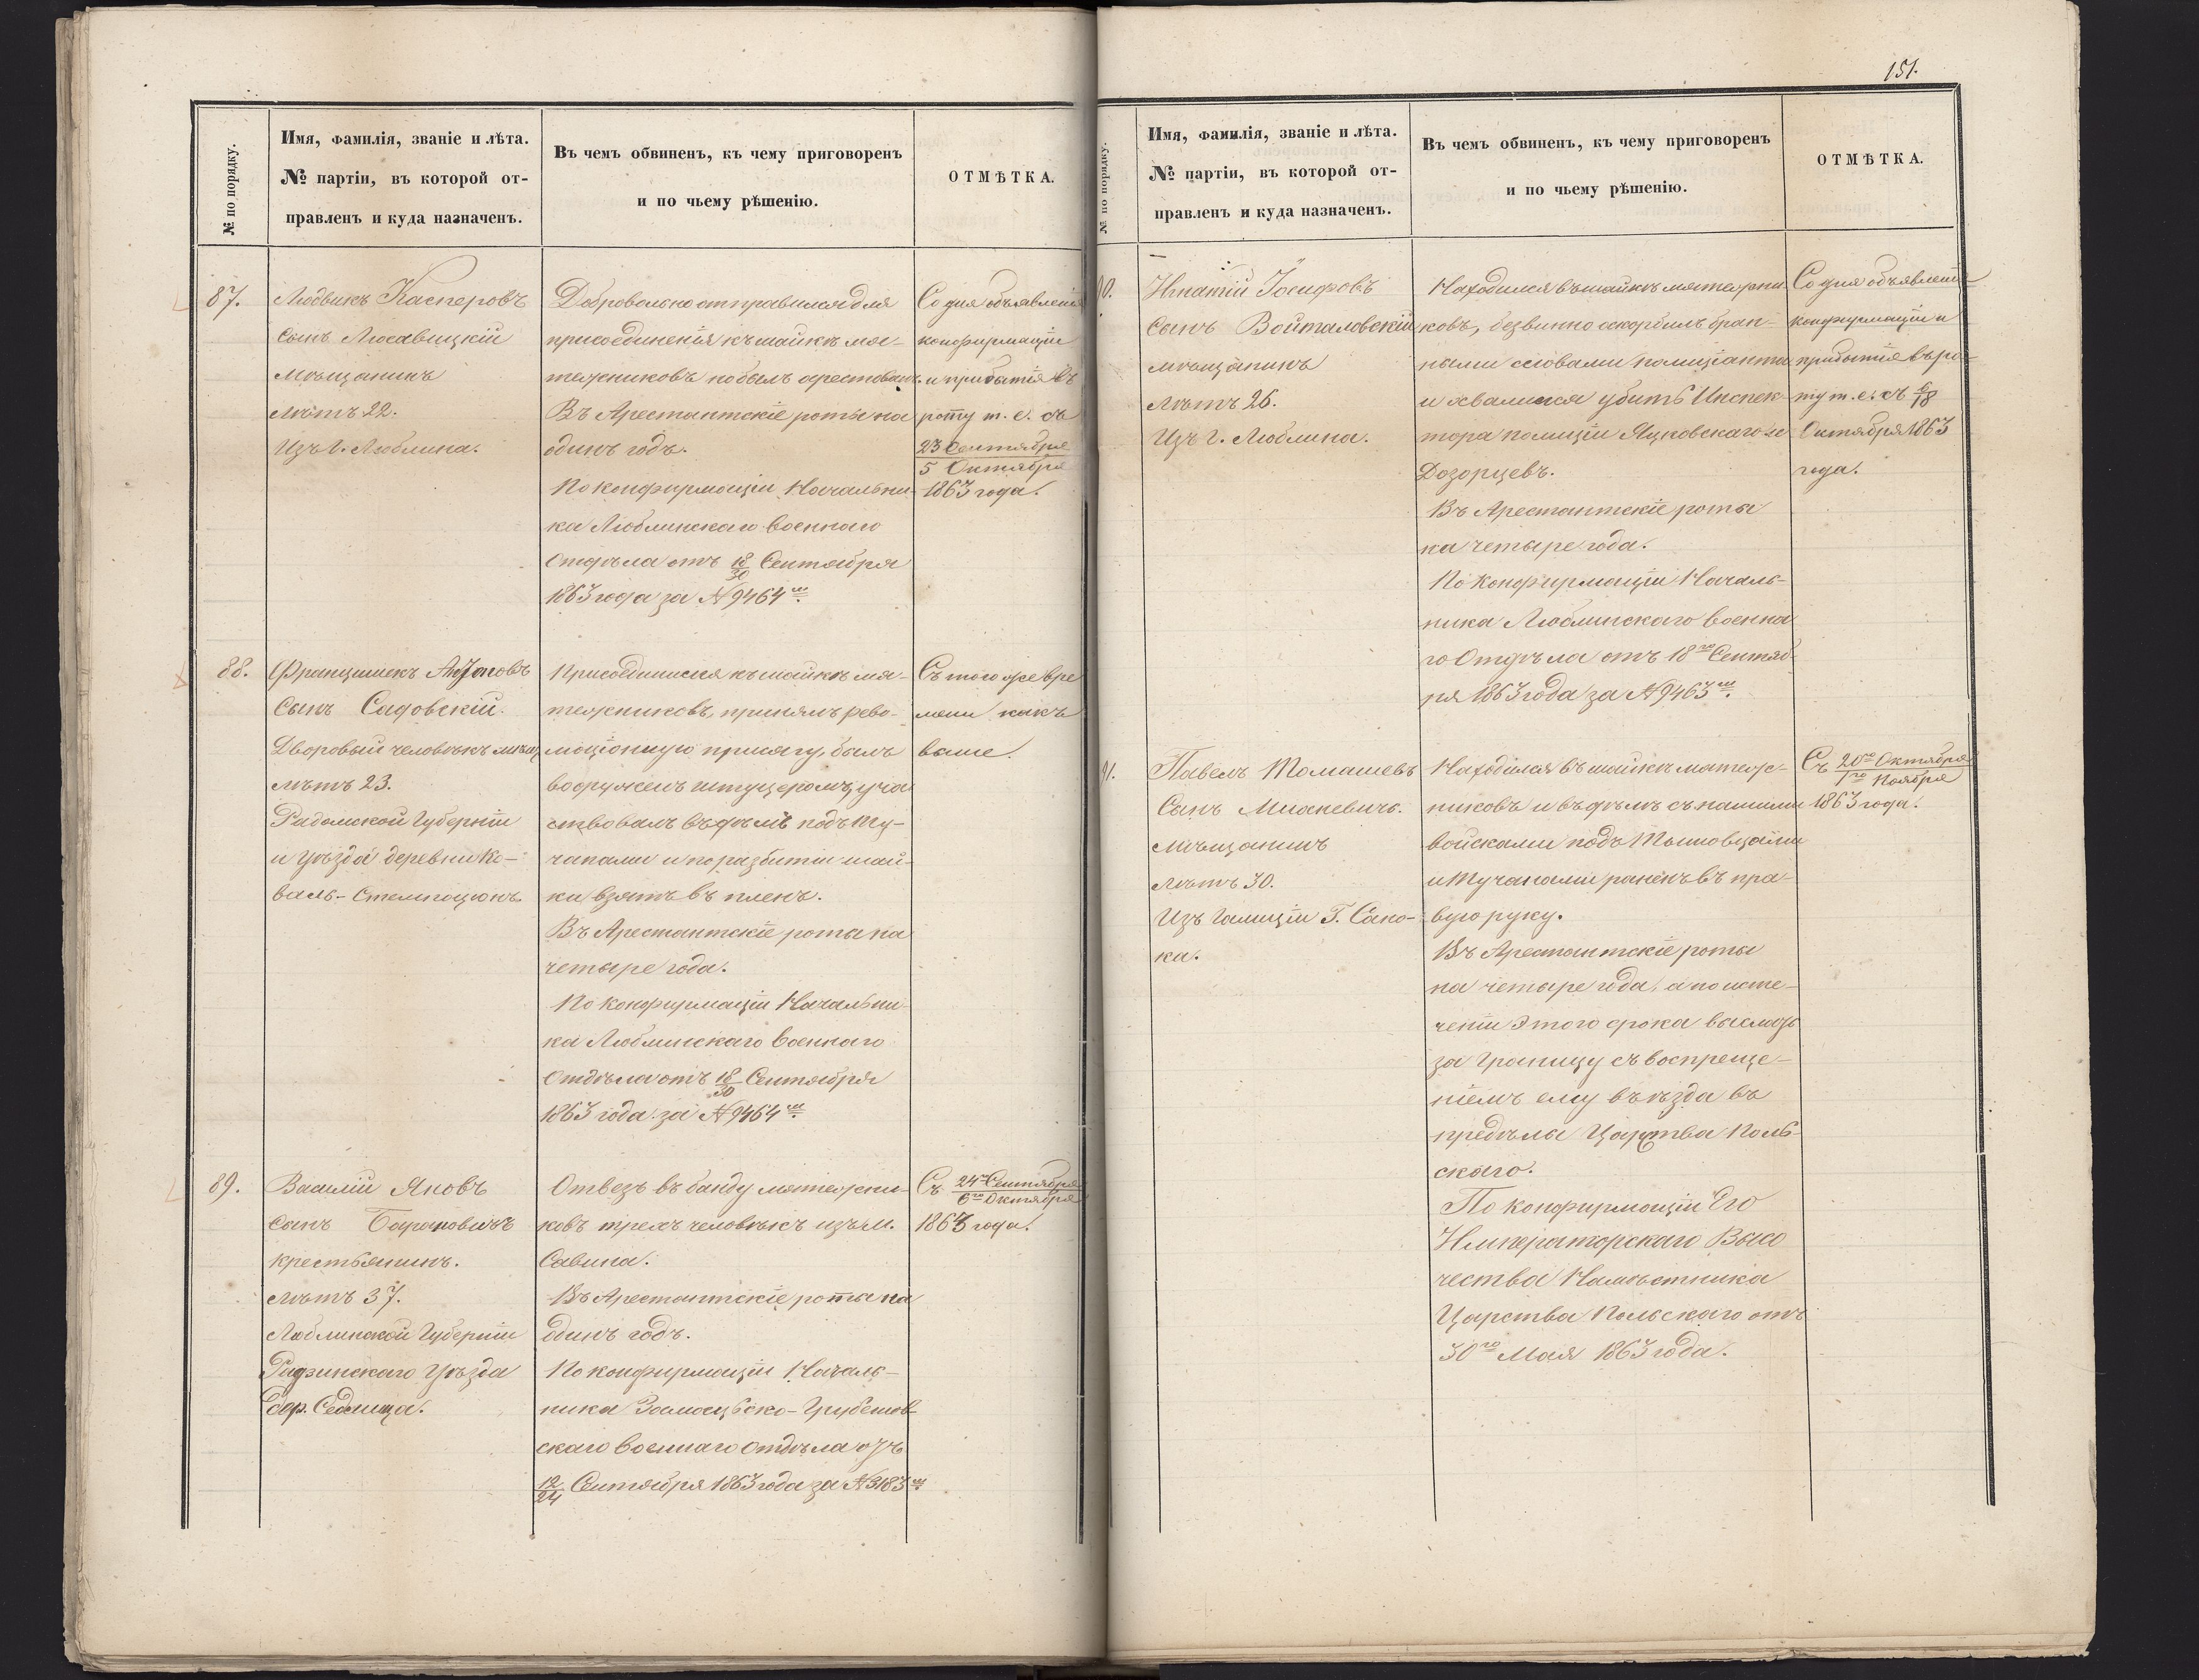 151.
№ по порядку.
Имя, фамилія, званіе и лѣта.
№ партіи, въ которой от-
правленъ и куда назначенъ.
Въ чемъ обвиненъ, къ чему приговоренъ
и по чьему рѣшенію.
ОТМѢТКА.
87.
Людвикъ Касперовъ
Сынъ Лисавицкій
мѣщанинъ
лѣтъ 22.
Изъ г. Люблина.
Добровольно отправился для
присоединенія къ шайкѣ мя-
тежниковъ но былъ арестованъ.
Въ Арестантскіе роты на
одинъ годъ.
По конфирмаціи Начальни-
ка Люблинскаго военнаго
Отдѣла отъ 18/30 Сентября
1863 года за № 9464 мъ.
Со дня объявленія
конфирмаціи
и прибытія въ
роту т. е. съ
23 Сентября
5 Октября
1863 года.
88.
Францишекъ Антоновъ
Сынъ Садовскій.
Дворовый человѣкъ
лѣтъ 23.
Радомской Губерніи
и уѣзда деревни Ко-
валь-Стемпоцюнъ
Присоединился къ шайкѣ мя-
тежниковъ, принялъ рево-
люціонную присягу, былъ
вооруженъ штуцеромъ, уча
ствовалъ въ дѣлѣ подъ Ту-
чапами и по разбитіи шай-
ки взятъ въ пленъ.
Въ Арестантскіе роты на
четыре года.
По конфирмаціи Начальни-
ка Люблинскаго военнаго
Отдѣла отъ 18/30 Сентября
1863 года за № 9464 мъ.
Съ того же вре
мени какъ
выше.
89.
Василій Яновъ
Сынъ Барановичъ
крестьянинъ.
лѣтъ 37.
Люблинской Губерніи
Радзинскаго Уѣзда
дер. Седлища.
Отвезъ въ банду мятежни-
ковъ трехъ человѣкъ изъ м.
Савина.
Въ Арестантскіе роты на
одинъ годъ.
По конфирмаціи Началь-
ника Замосцьско-Грубешов-
скаго военнаго Отдѣла отъ
12/24 Сентября 1863 года за № 3183 мъ
Съ 24го Сентября
6го Октября
1863 года.
№ по порядку.
Имя, фамилія, званіе и лѣта.
№ партіи, въ которой от-
правленъ и куда назначенъ.
Въ чемъ обвиненъ, къ чему приговоренъ
и по чьему рѣшенію.
ОТМѢТКА.
90.
Игнатій Іосифовъ
Сынъ Войталовскій
мѣщанинъ
лѣтъ 26.
Изъ г. Люблина.
Находился въ шайкѣ мятежни
ковъ, безвинно оскорбилъ бран-
ными словами полиціанта
и хвалился убить Инспек-
тора полиціи Яцковскаго и
Дозорцевъ.
Въ Арестантскіе роты
на четыре года.
По Конфирмаціи Началь-
ника Люблинскаго военна
го Отдѣла отъ 18го Сентяб-
ря 1863 года за № 9463 мъ.
Со дня объявленія
конфирмаціи и
прибытія въ ро-
ту т. е. съ 6/18
Октября 1863
года.
91.
Павелъ Томашевъ
Сынъ Миткевичъ.
мѣщанинъ
лѣтъ 30.
Изъ Галиціи Г. Сано-
ка.
Находился въ шайкѣ мятеж-
никовъ и въ дѣлѣ съ нашими
войсками подъ Тышовцами
и Тучапами раненъ въ пра-
вую руку.
Въ Арестантскіе роты
на четыре года, а по исте-
ченіи этого срока выслать
за границу съ воспреще-
ніемъ ему въѣзда въ
предѣлы Царства Поль-
скаго.
По конфирмаціи Его
Императорскаго Высо
чества Намѣстника
Царства Польскаго отъ
30го Мая 1863 года.
Съ 20го Октября
1го Ноября
1863 года.